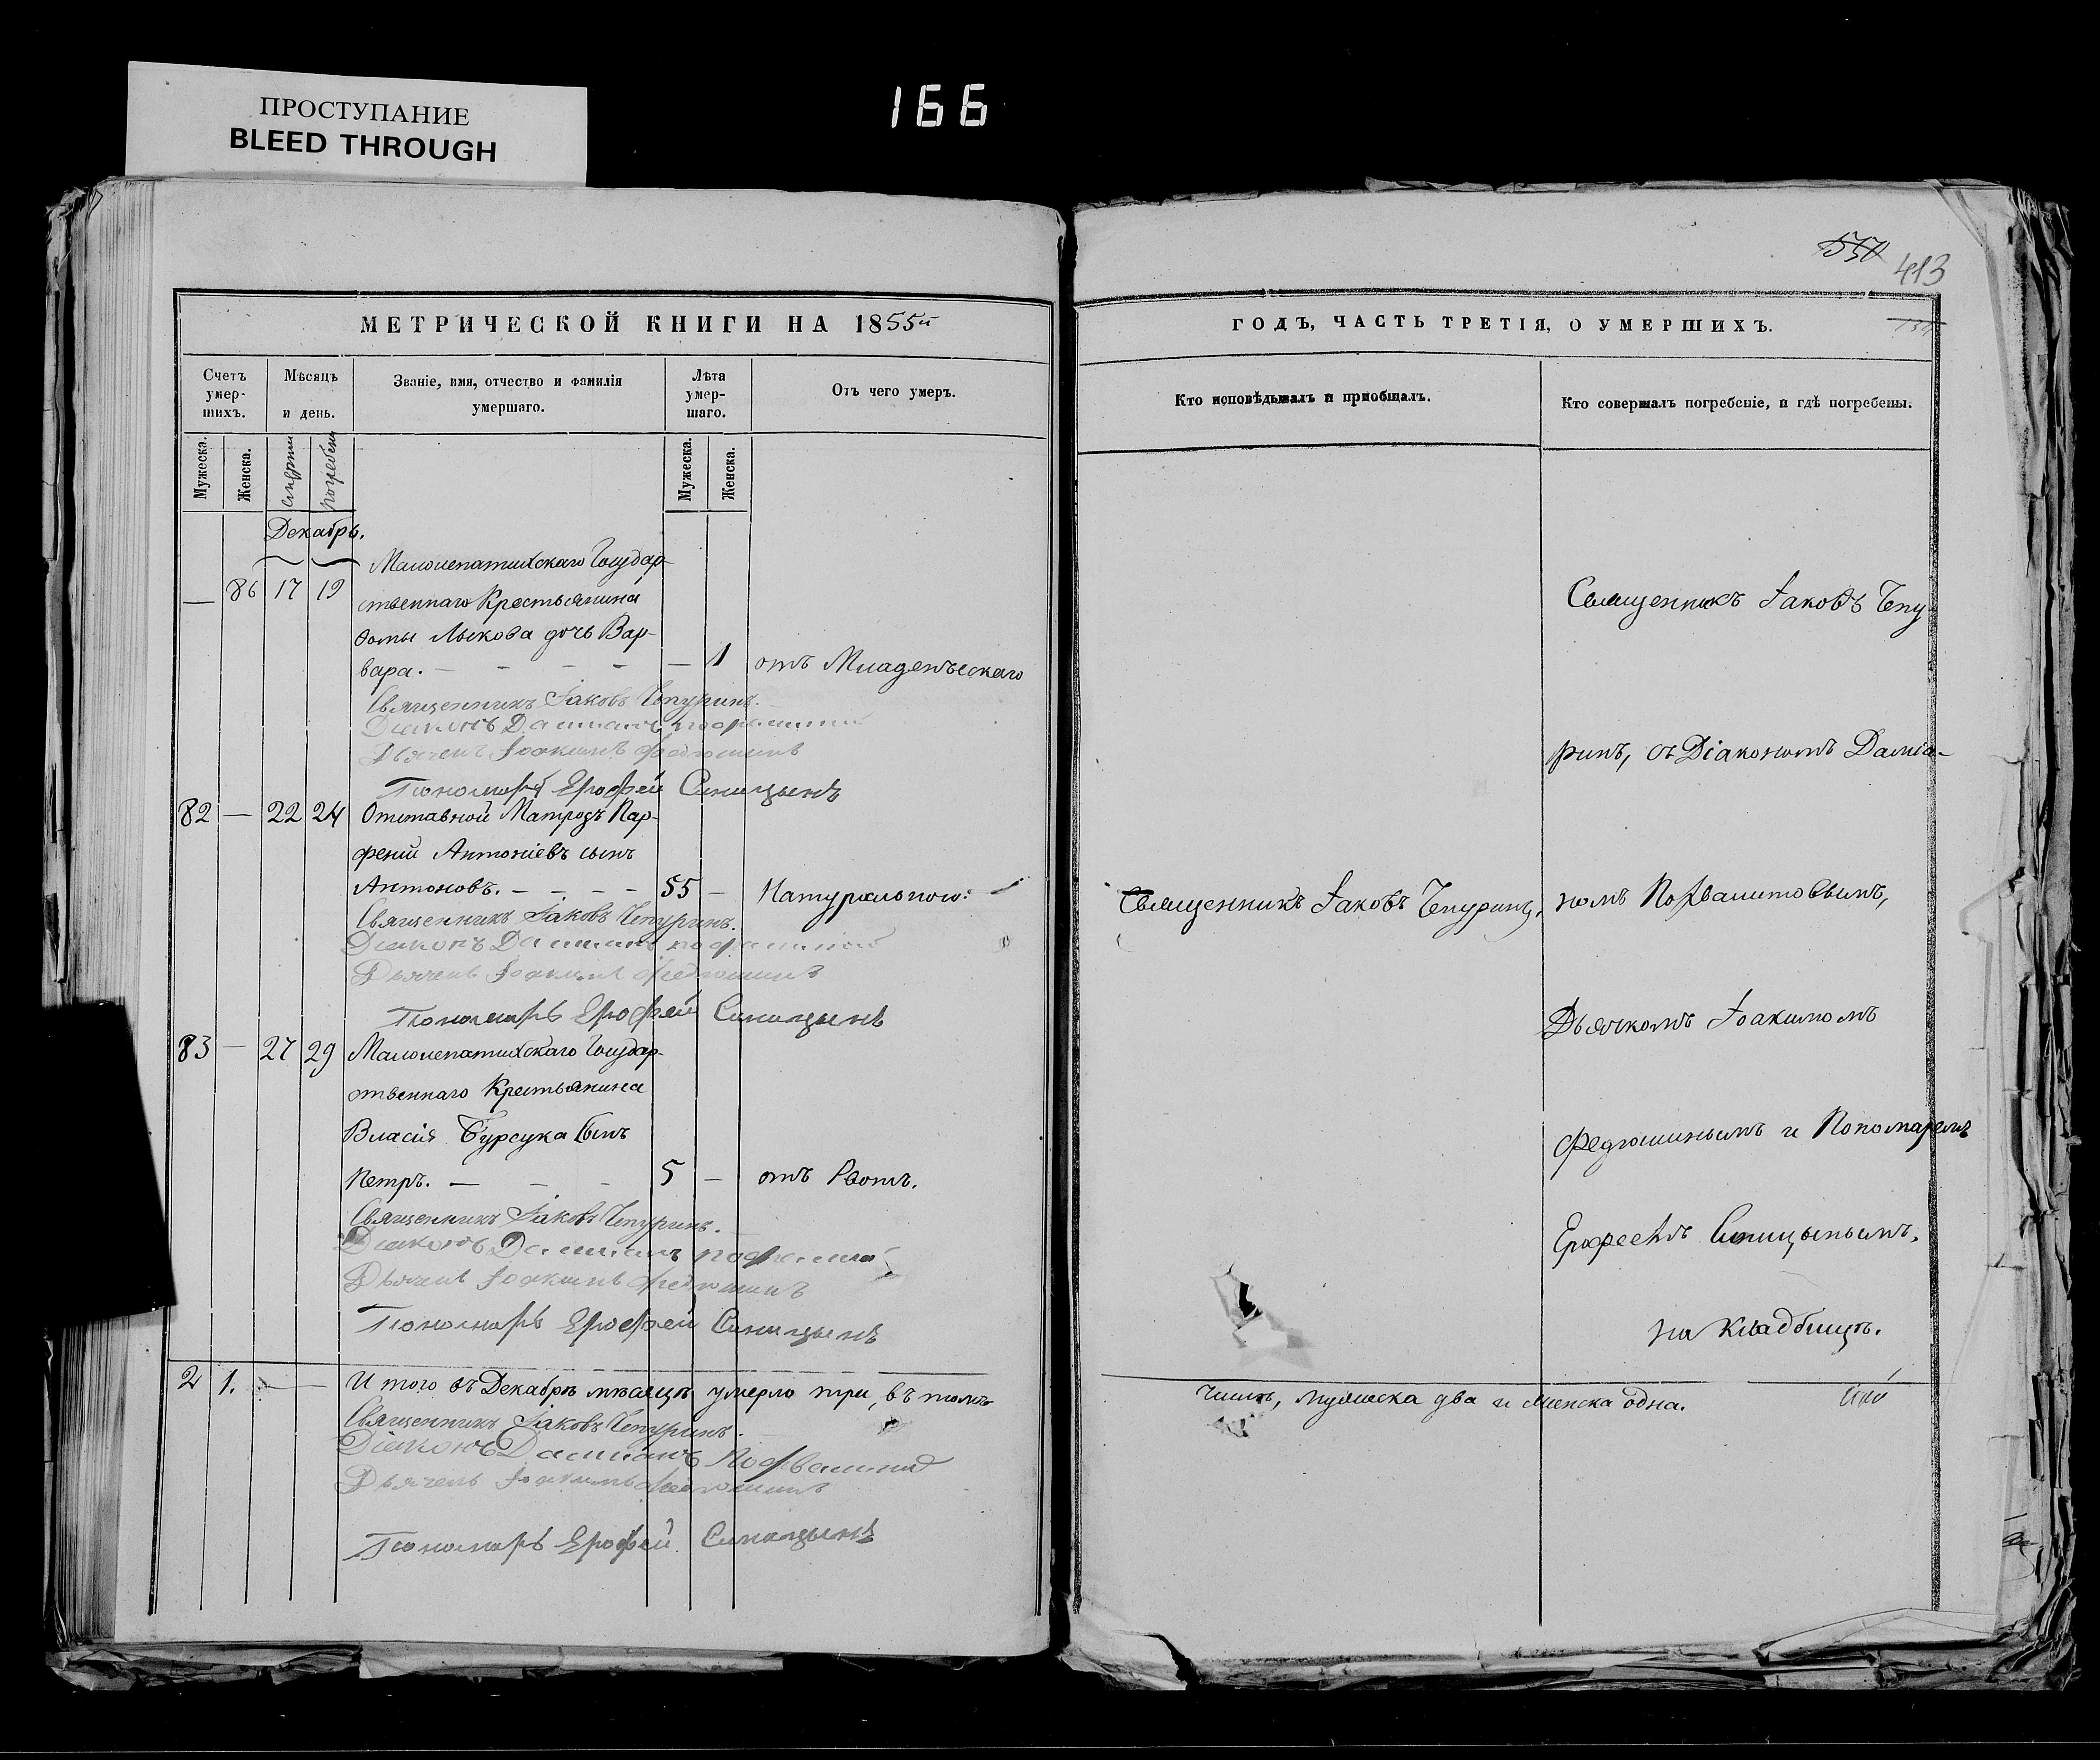 166
ПРОСТУПАНИЕ
BLEED THROUGH
МЕТРИЧЕСКОЙ КНИГИ НА 1855й
Счетъ умер-шихъ.
Мѣсяцъ и день.
Званіе, имя, отчество и фамилія умершаго.
Лѣта умер-шаго.
Отъ чего умеръ.
Мужеска.
Женска.
смерти
погребенія
Мужеска.
Женска.
Декабрь.
Малолепатихскаго Государ-
— 86 17 19 ственнаго Крестьянина
Ѳомы Лыкова дочь Вар-
вара. — — — — — 1 отъ Младенческаго
Священникъ Іаковъ Чепуринъ.
Діаконъ Даміанъ
Дьячекъ Іоакимъ Федюшинъ
Пономарь Ерофей Синицынъ
82 — 22 24 Отставной Матрозъ Пар-
феній Антоніевъ сынъ
Антоновъ. — — — — 55 — Натуральною.
Священникъ Іаковъ Чепуринъ.
Діаконъ Даміанъ
Дьячекъ Іоакимъ Федюшинъ
Пономарь Ерофей Синицынъ
83 — 27 29 Малолепатихскаго Государ-
ственнаго Крестьянина
Власія Бурсука сынъ
Петръ. — — — 5 — отъ Рвотъ.
Священникъ Іаковъ Чепуринъ.
Діаконъ Даміанъ
Дьячекъ Іоакимъ Федюшинъ
Пономарь Ерофей Синицынъ
2 1. — — И того въ Декабрѣ мѣсяцѣ умерло три, въ томъ
Священникъ Іаковъ Чепуринъ.
Діаконъ Даміанъ
Дьячекъ Іоакимъ Федюшинъ
Пономарь Ерофей Синицынъ
413
ГОДЪ, ЧАСТЬ ТРЕТІЯ, О УМЕРШИХЪ.
Кто исповѣдывалъ и пріобщалъ.
Кто совершалъ погребеніе, и гдѣ погребены.
Священникъ Іаковъ Чепу-
ринъ, съ Діакономъ Даміа-
Священникъ Іаковъ Чепуринъ.
номъ
Дьячкомъ Іоакимомъ
Федюшинымъ и Пономаремъ
Ерофеемъ Синицынымъ,
на Кладбищѣ.
числѣ, мужеска два и женска одна.